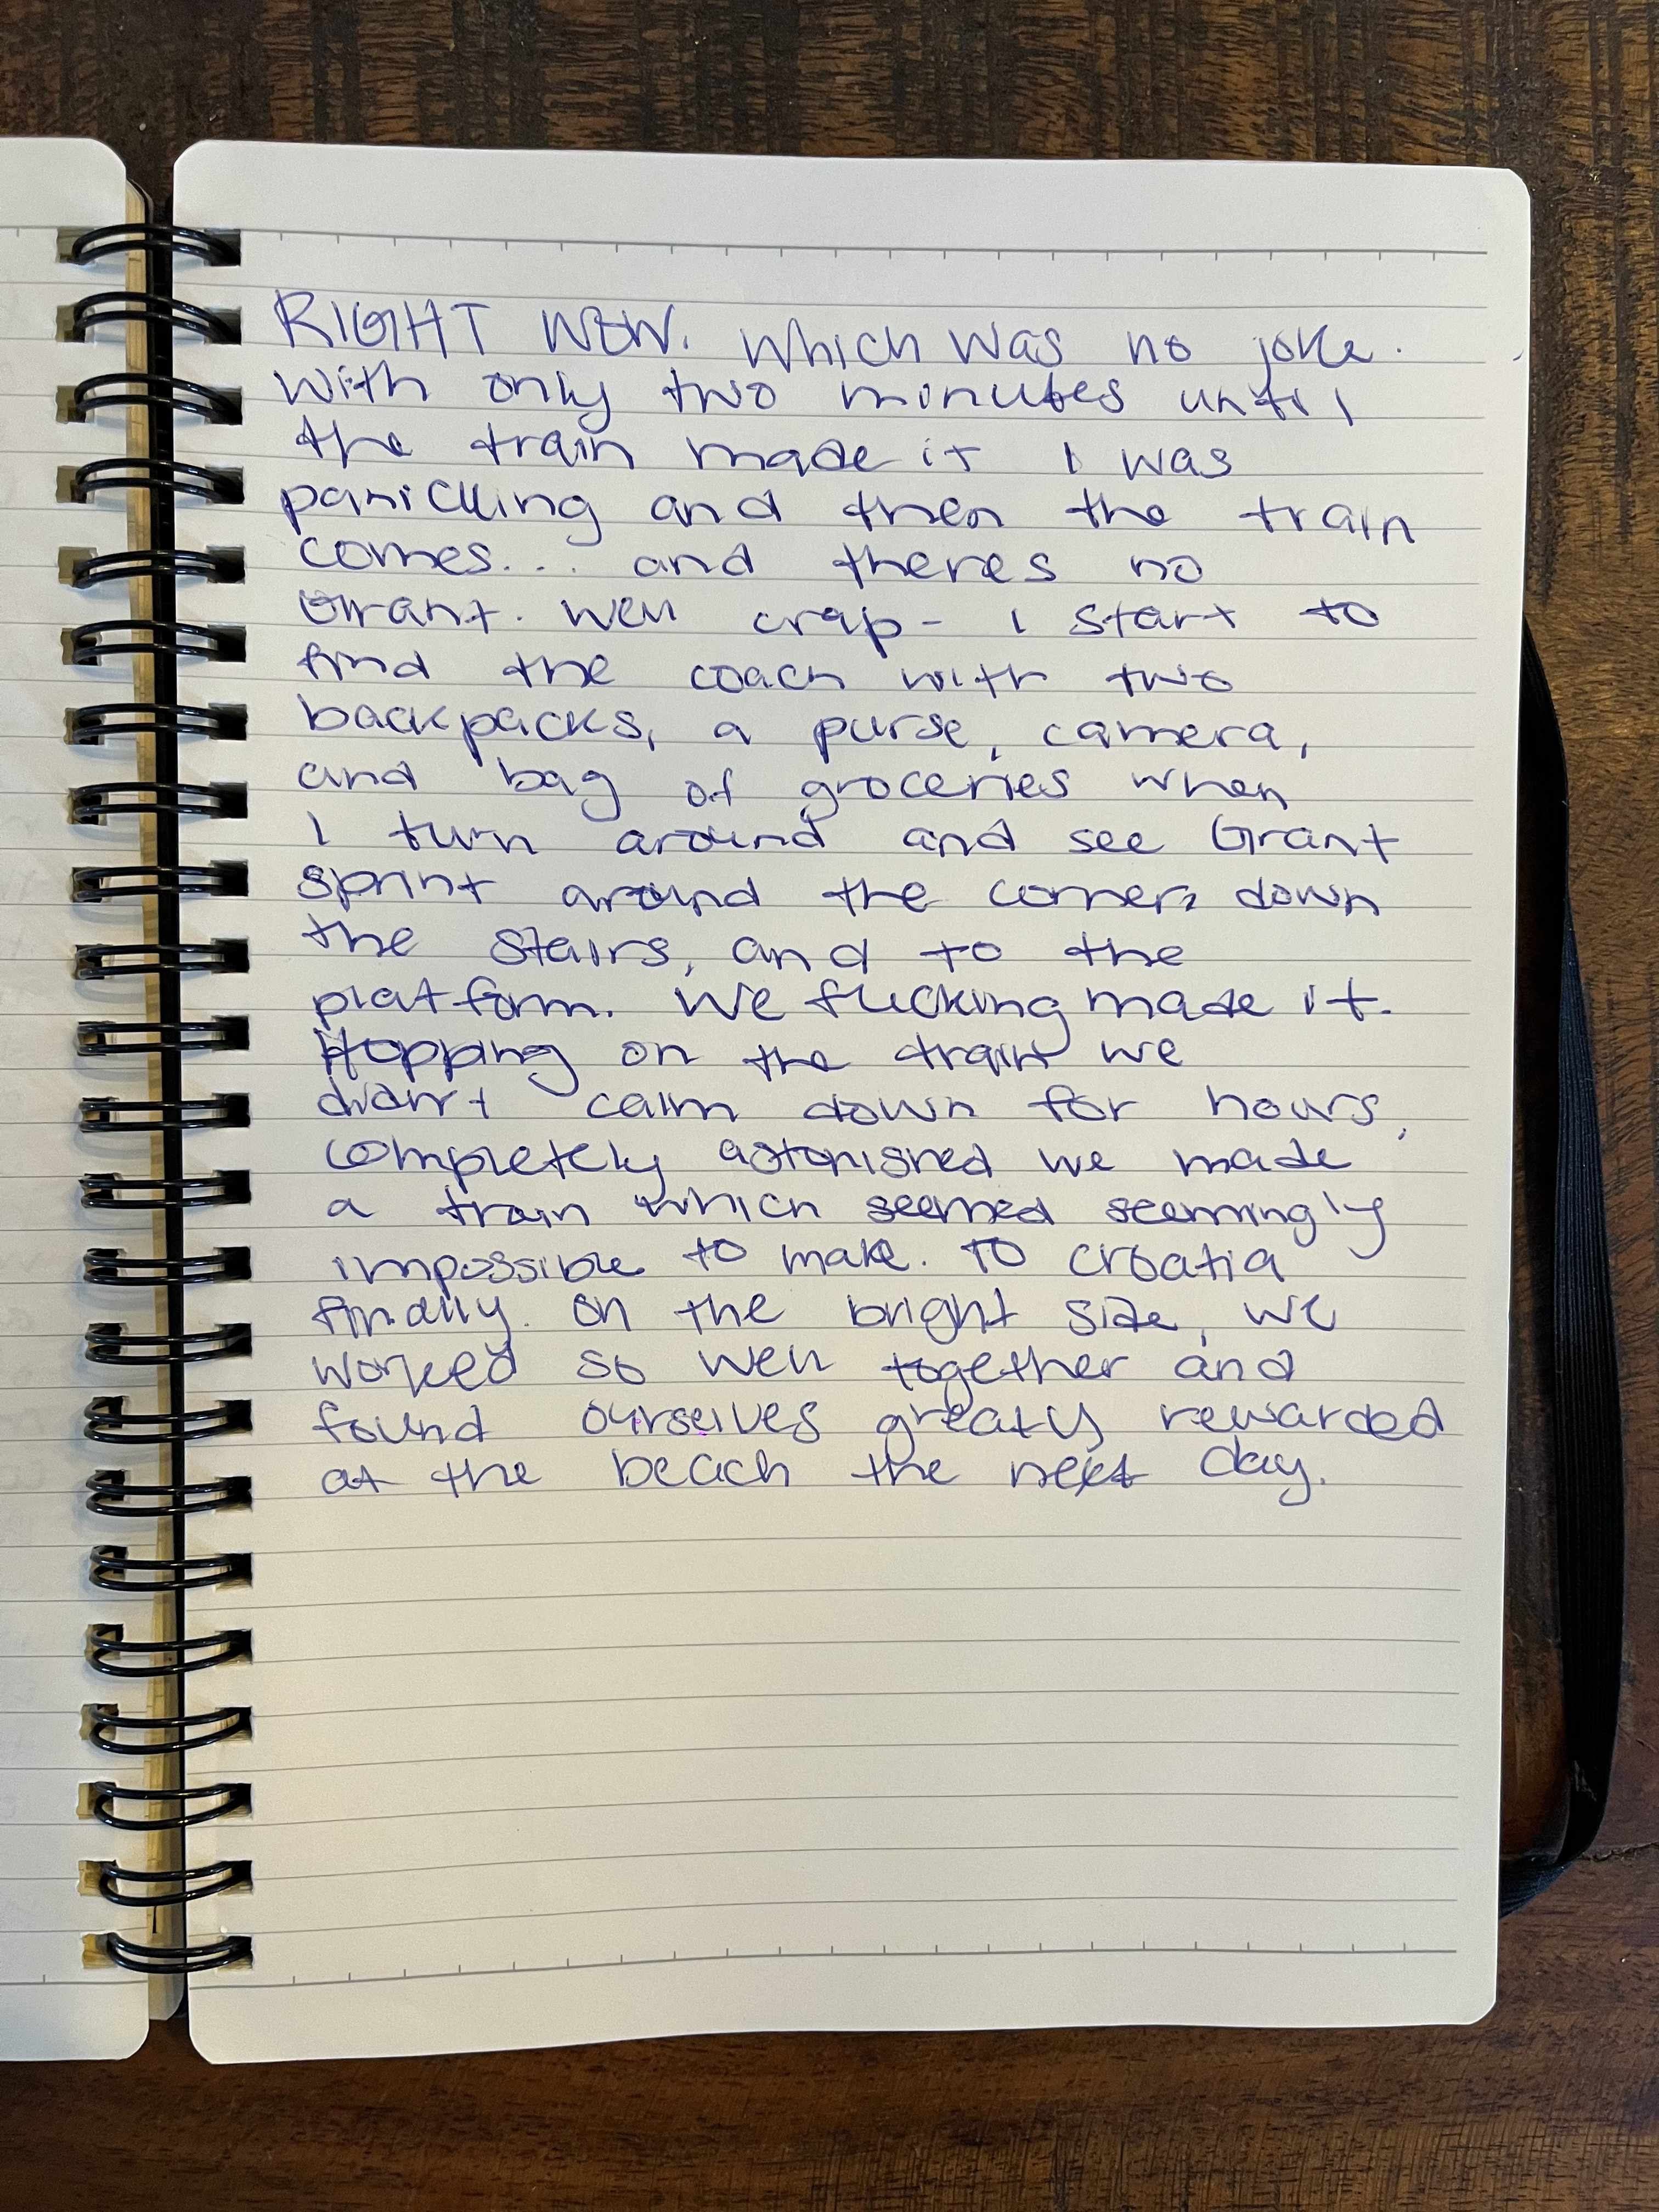 RIGHT NOW. Which was no joke.
With only two minutes until
the train made it I was
panickling and then the train
comes... and theres no
Grant. Well crap - I start to
find the coach with two
backpacks, a purse, camera,
and bag of groceries when
I turn around and see Grant
sprint around the corner, down
the stairs, and to the
platform. We fucking made it.
Hopping on the train we
didn't calm down for hours,
completely astonished we made
a train which seemed seemingly
impossible to make. To Croatia
finally. On the bright side, we
worked so well together and
found ourselves greatly rewarded
at the beach the next day.